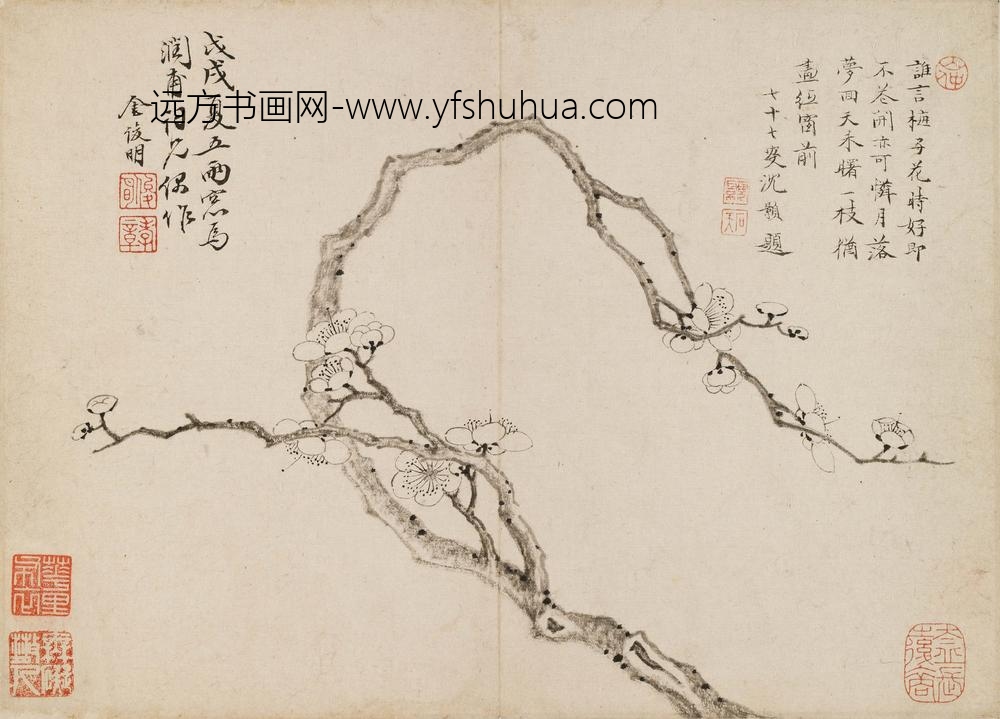 誰言梅子花時好即
不花開亦可憐月落
夢回天未曙一枝猶
畫紙窗前
七十七叟沈顥題
戊戌夏五雨窓為
潤甫詞兄偶作
金俊明
远方书画网-www.yfshuhua.com